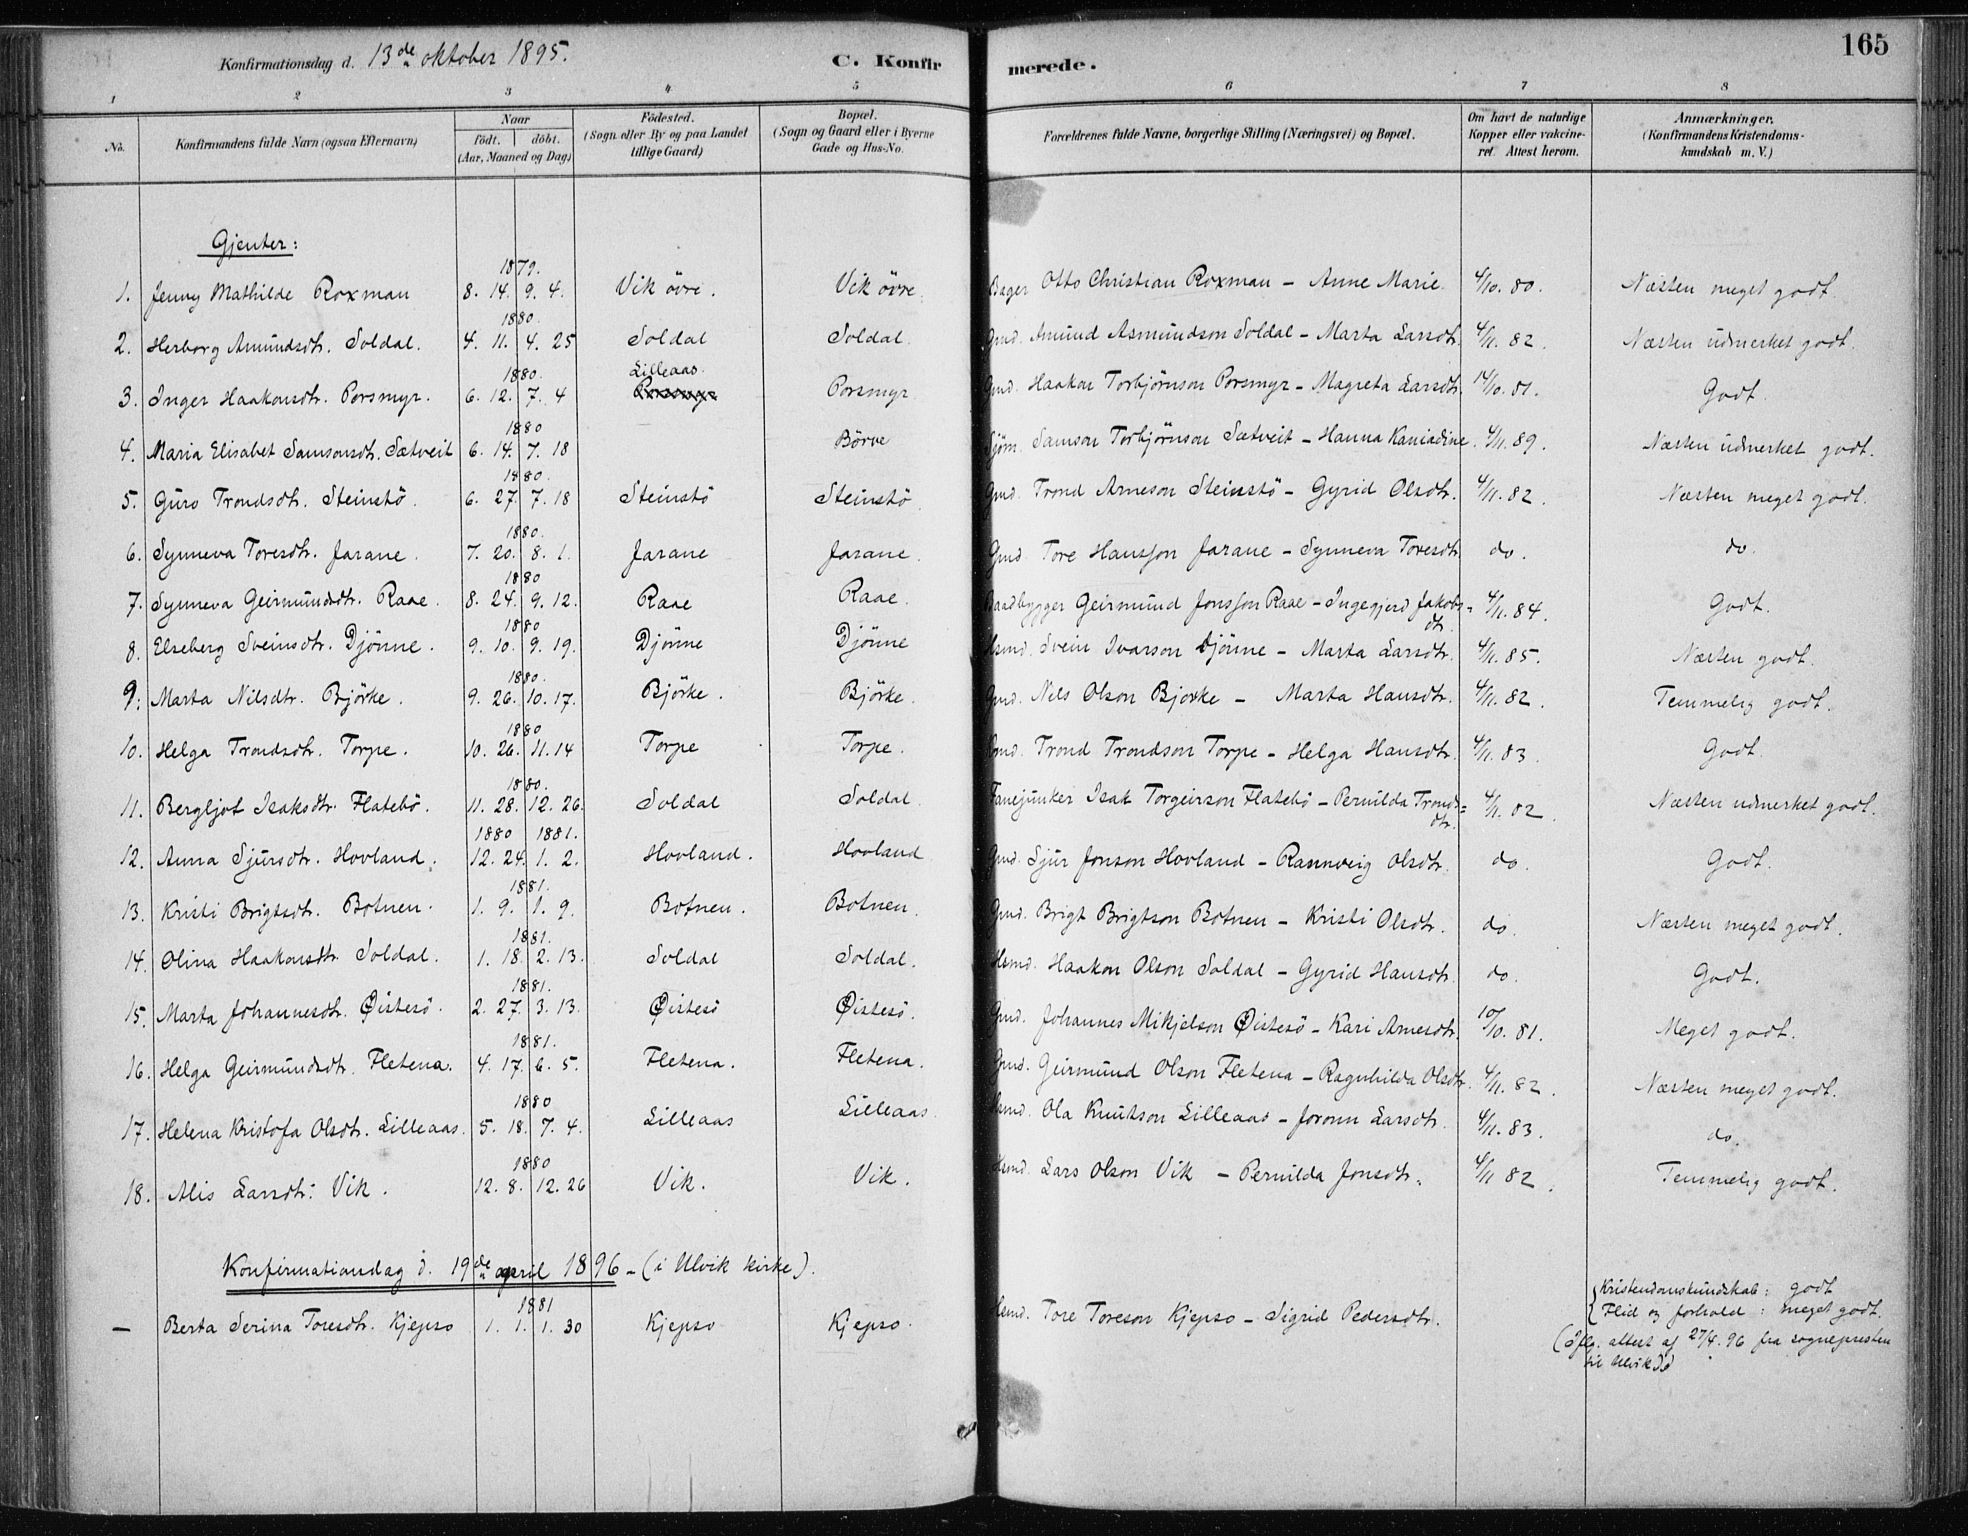 165
Konfirmationsdag d. 13de oktober 1895.
C. Konfirmerede.
1 2 3 4 5 6 7 8
No. Konfirmandens fulde Navn (ogsaa Efternavn) Naar født. døbt. (Aar, Maaned og Dag) Fødested. (Sogn eller By og paa Landet tillige Gaard) Bopæl. (Sogn og Gaard eller i Byerne Gade og Hus-No. Forældrenes fulde Navne, borgerlige Stilling (Næringsvei) og Bopæl. Om havt de naturlige Kopper eller vakcineret. Attest herom. Anmærkninger. (Konfirmandens Kristendomskundskab m. V.)
Gjenter:
1879.
1. Jenny Mathilde Roxman 8. 14. 9. 4. Vik övre. Vik övre. Bager Otto Christian Roxman - Anne Marie 4/10. 80. Næsten meget godt.
1880.
2. Herborg Amundsdtr. Soldal. 4. 11. 4. 25 Soldal Soldal. Gmd. Amund Asmundson Soldal - Marta Larsdtr. 4/11. 82. Næsten udmerket godt.
1880. Lilleaas.
3. Inger Haakonsdtr. Porsmyr. 6. 12. 7. 4 Porsmyr Porsmyr Gmd. Haakon Torbjørnson Porsmyr - Magreta Larsdtr. 14/10. 81. Godt.
1880
4. Maria Elisabet Samsonsdtr. Sætveit 6. 14. 7. 18 Börve Sjøm. Samson Torbjørnson Sætveit - Hanna Kaniadine. 4/11. 89. Næsten udmerket godt.
1880.
5. Guro Trondsdtr. Steinstö. 6. 27. 7. 18 Steinstö Steinstö Gmd. Trond Arneson Steinstö - Gyrid Olsdtr. 4/11. 82. Næsten meget godt.
1880.
6. Synneva Toresdtr. Jarane. 7. 20. 8. 1. Jarane Jarane. Gmd. Tore Hansson Jarane - Synneva Toresdtr. do. do.
1880
7. Synneva Geirmundsdtr. Raae. 8. 24. 9. 12. Raae Raae. Baadbygger Geirmund Jonsson Raae - Ingegjerd Jakobsdtr. 4/11. 84. Godt.
1880
8. Elseberg Sveinsdtr. Djönne. 9. 10. 9. 19. Djönne Djönne Hsmd. Svein Ivarson Djönne - Marta Larsdtr. 4/11. 85. Næsten godt.
1880.
9. Marta Nilsdtr. Bjørke. 9. 26. 10. 17. Bjørke. Bjørke. Gmd. Nils Olson Bjørke - Marta Hansdtr. 4/11. 82. Temmelig godt.
1880
10. Helga Trondsdtr. Torpe. 10. 26. 11. 14 Torpe Torpe. Gmd. Trond Trondson Torpe - Helga Hansdtr. 4/11. 83. Godt.
1880.
11. Bergljot Isaksdtr. Flatebö. 11. 28. 12. 26. Soldal Soldal Fanejunker Isak Torgeirson Flatebö - Pernilda Trondsdtr. 4/11. 82. Næsten udmerket godt.
1880 1881.
12. Anna Sjursdtr. Hovland. 12. 24. 1. 2. Hovland. Hovland Gmd. Sjur Jonson Hovland - Rannveig Olsdtr. do. Godt.
1881.
13. Kristi Brigtsdtr. Botnen. 1. 9. 1. 9. Botnen. Botnen. Gmd. Brigt Brigtson Botnen - Kristi Olsdtr. do. Næsten meget godt.
1881.
14. Olina Haakonsdtr. Soldal. 1. 18. 2. 13. Soldal Soldal. Hsmd. Haakon Olson Soldal - Gyrid Hansdtr. do. Godt.
1881.
15. Marta Johannesdtr. Øistesö. 2. 27. 3. 13. Øistesö Øistesö. Gmd. Johannes Mikjelson Øistesö - Kari Arnesdtr. 10/10. 81. Meget godt.
1881.
16. Helga Geirmundsdtr. Fletena. 4. 17. 6. 5. Fletena. Fletena. Gmd. Geirmund Olson Fletena - Ragnhilda Olsdtr. 4/11. 82. Næsten meget godt.
1880
17. Helena Kristofa Olsdtr. Lilleaas. 5. 18. 7. 4. Lilleaas Lilleaas. Hsmd. Ola Knutson Lilleaas - Joronn Larsdtr. 4/11. 83. do.
1880
18. Alis Larsdtr. Vik. 12. 8. 12. 26 Vik. Vik. Hsmd. Lars Olson Vik - Pernilda Jonsdtr. 4/11 82. Temmelig godt.
Konfirmationsdag d. 19de april 1896 - (i Ulvik kirke).
1881
— Berta Serina Toresdtr. Kjepso 1. 1. 1. 30 Kjepso Kjepso. Hsmd. Tore Toreson Kjepso - Sigrid Pedersdtr.
Kristendomskundskab: godt
Flid og forhold: meget godt.
(Iflg. attest af 27/4. 96 fra sognepresten
til Ulvik.)